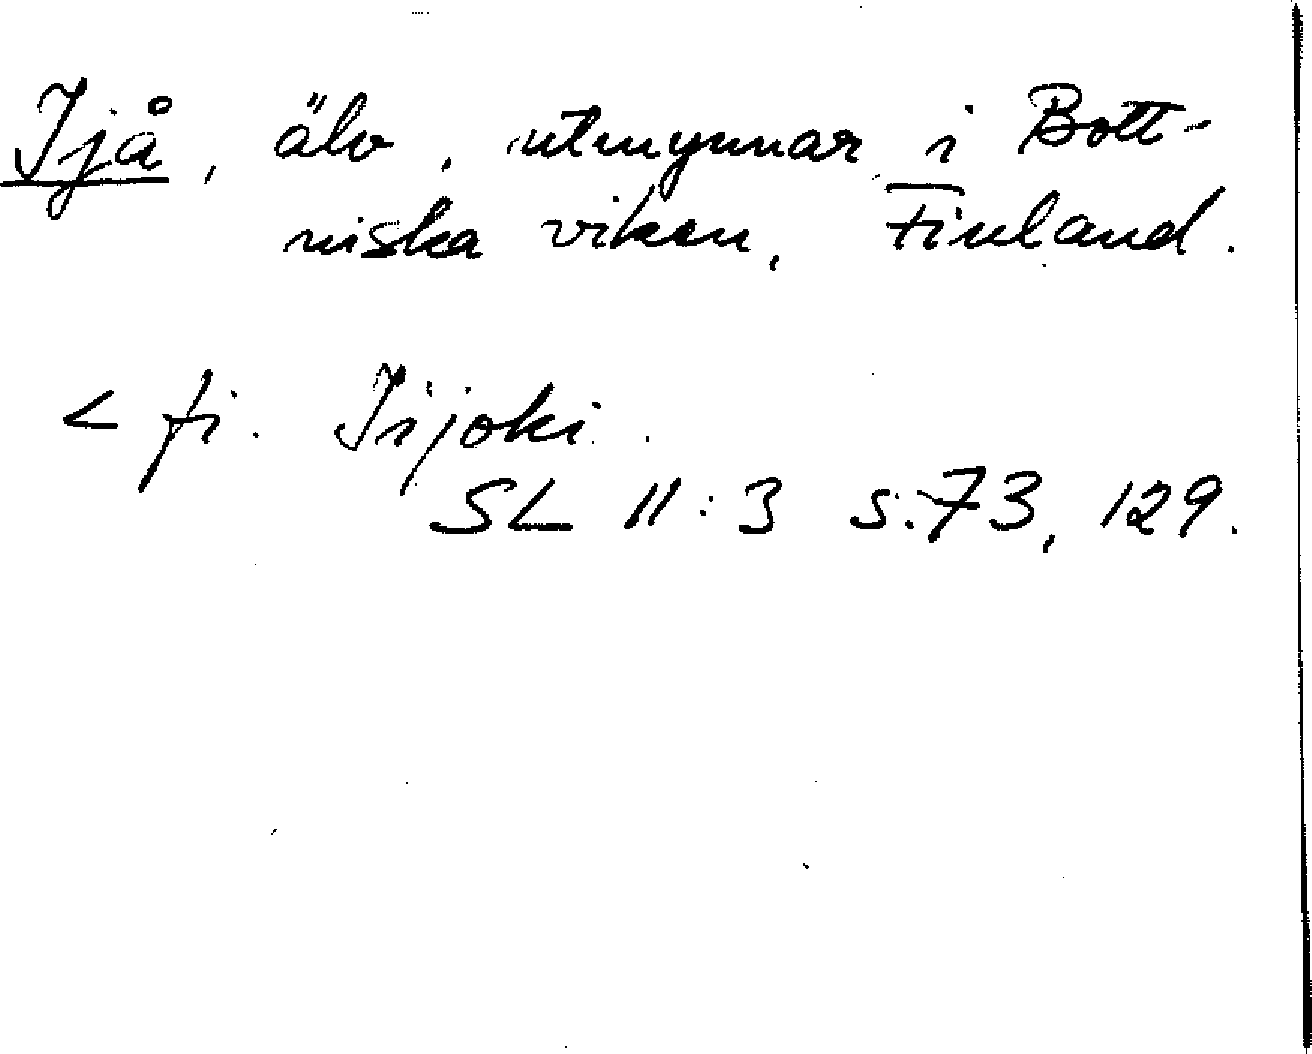 Ijå, älv, utmynnar i Bott-
niska viken, Finland.
< fi. Iijoki.
SL 11:3 s. 73, 129.